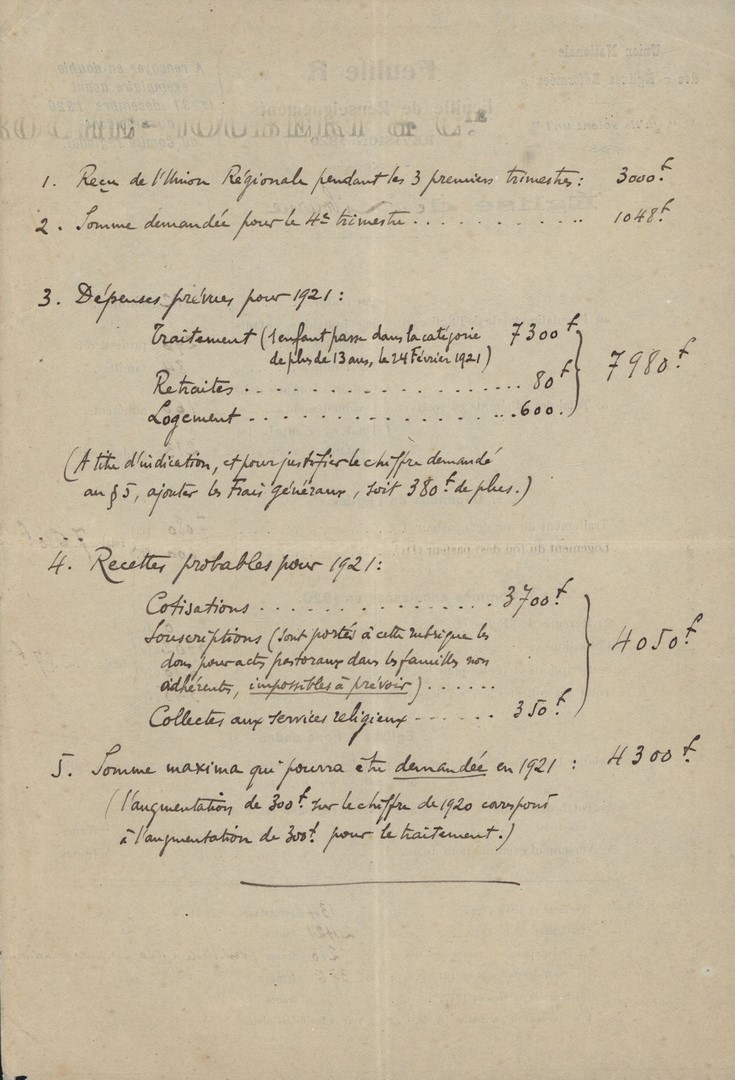 1. Reçu de l'Union Régionale pendant les 3 premiers trimestres : 3000f
2. Somme demandée pour le 4e trimestre . . . . . . . . . . . 1048f
3. Dépenses prévues pour 1921 :
Traitement (1 enfant passe dans la catégorie 7300f
de plus de 13 ans, le 24 Février 1921)
7980f
Retraites . . . . . . . . . . . . . . . . . 80f
Logement . . . . . . . . . . . . . . . . 600.
(A titre d'indication, et pour justifier le chiffre demandé
au § 5, ajouter les Frais généraux, soit 380f de plus.)
4. Recettes probables pour 1921 :
Cotisations . . . . . . . . . . . . . . 3700f
Souscriptions (sont portés à cette rubrique les
4050f
dons pour actes pastoraux dans les familles non
adhérents, impossibles à prévoir) . . . . . .
Collectes aux services religieux . . . . . . 350f
5. Somme maxima qui pourra être demandée en 1921 : 4300f
(l'augmentation de 300f sur le chiffre de 1920 correspond
à l'augmentation de 300f pour le traitement.)